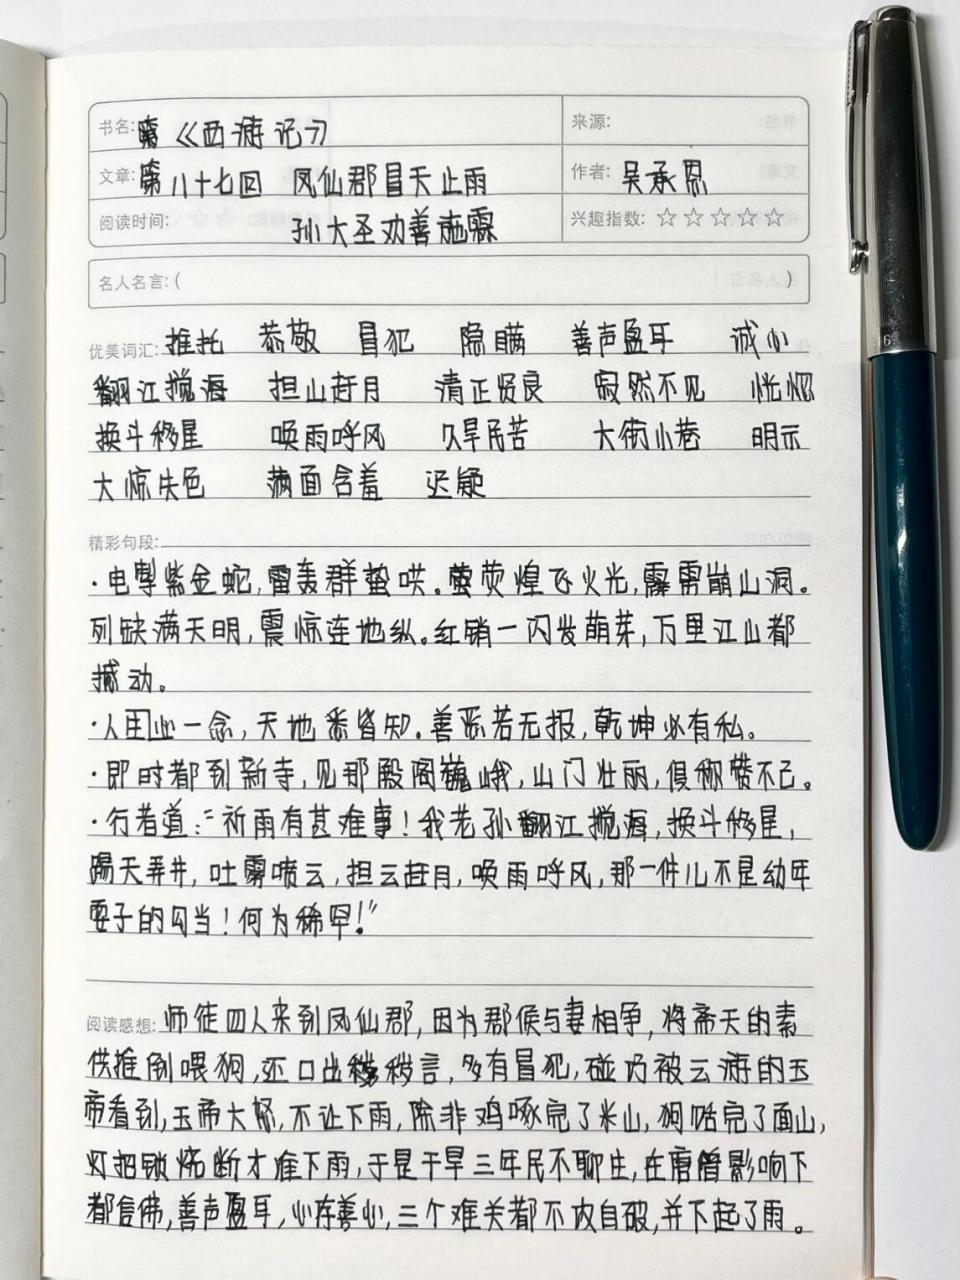 书名: 《西游记》 来源:
文章: 第八十七回 凤仙郡冒天止雨 作者: 吴承恩
阅读时间: 孙大圣劝善施霖 兴趣指数: ☆☆☆☆☆
名人名言: ( )
优美词汇: 推托 恭敬 冒犯 隐瞒 善声盈耳 诚心
翻江搅海 担山赶月 清正贤良 寂然不见 恍惚
换斗移星 唤雨呼风 久旱民苦 大街小巷 明示
大惊失色 满面含羞 迟疑
精彩句段:
·电掣紫金蛇,雷轰群蛰哄。萤荧煌飞火光,霹雳崩山洞。
列缺满天明,震惊连地纵。红销一闪发萌芽,万里江山都
撼动。
·人心一念,天地悉皆知。善恶若无报,乾坤必有私。
·即时都到新寺,见那殿阁巍峨,山门壮丽,俱称赞不已。
·行者道:“祈雨有甚难事!我老孙翻江搅海,换斗移星,
踢天弄井,吐雾喷云,担云赶月,唤雨呼风,那一件儿不是幼年
耍子的勾当!何为稀罕!”
阅读感想: 师徒四人来到凤仙郡,因为郡侯与妻相争,将斋天的素
供推倒喂狗,还口出秽言,多有冒犯,碰巧被云游的玉
帝看到,玉帝大怒,不让下雨,除非鸡啄完了米山,狗舔完了面山,
灯把锁烧断才准下雨,于是干旱三年民不聊生,在唐僧影响下
都信佛,善声盈耳,心存善心,三个难关都不攻自破,并下起了雨。